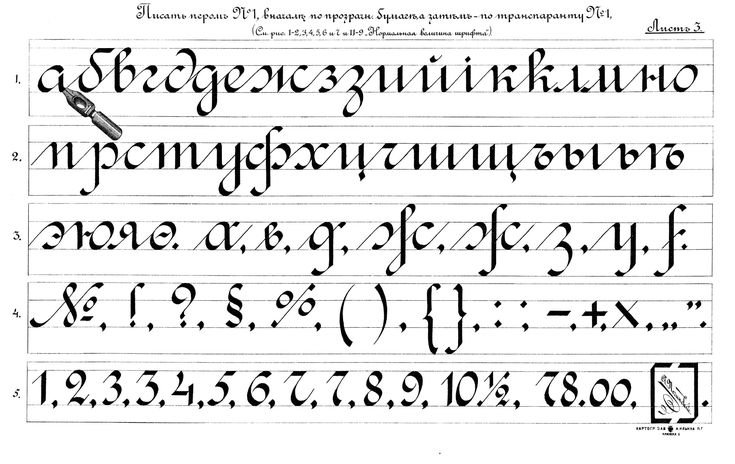 Писать перомъ №1, вначалѣ по прозрачн. бумагѣ, а затѣмъ - по транспаранту №1,
(См. рис. 1-2,3,4,5,6 и 7 и 11-9 „Нормальная величина шрифта“.)
Листъ 3.
1. абвггдежззийіккλмно
2. прстуфхцчшщъыьѣ
3. эюяѳ. а, в, д, ж, ж, з, у, f.
4. №, !, ?, §, %, ( ), { }, : ; -, +, ×, „ ”.
5. 1, 2, 3, 3, 4, 5, 6, 7, 7, 8, 9, 10½, 78.00, [ ].
КАРТОГР. ЗАВ. А. ИЛЬИНА П.Г.